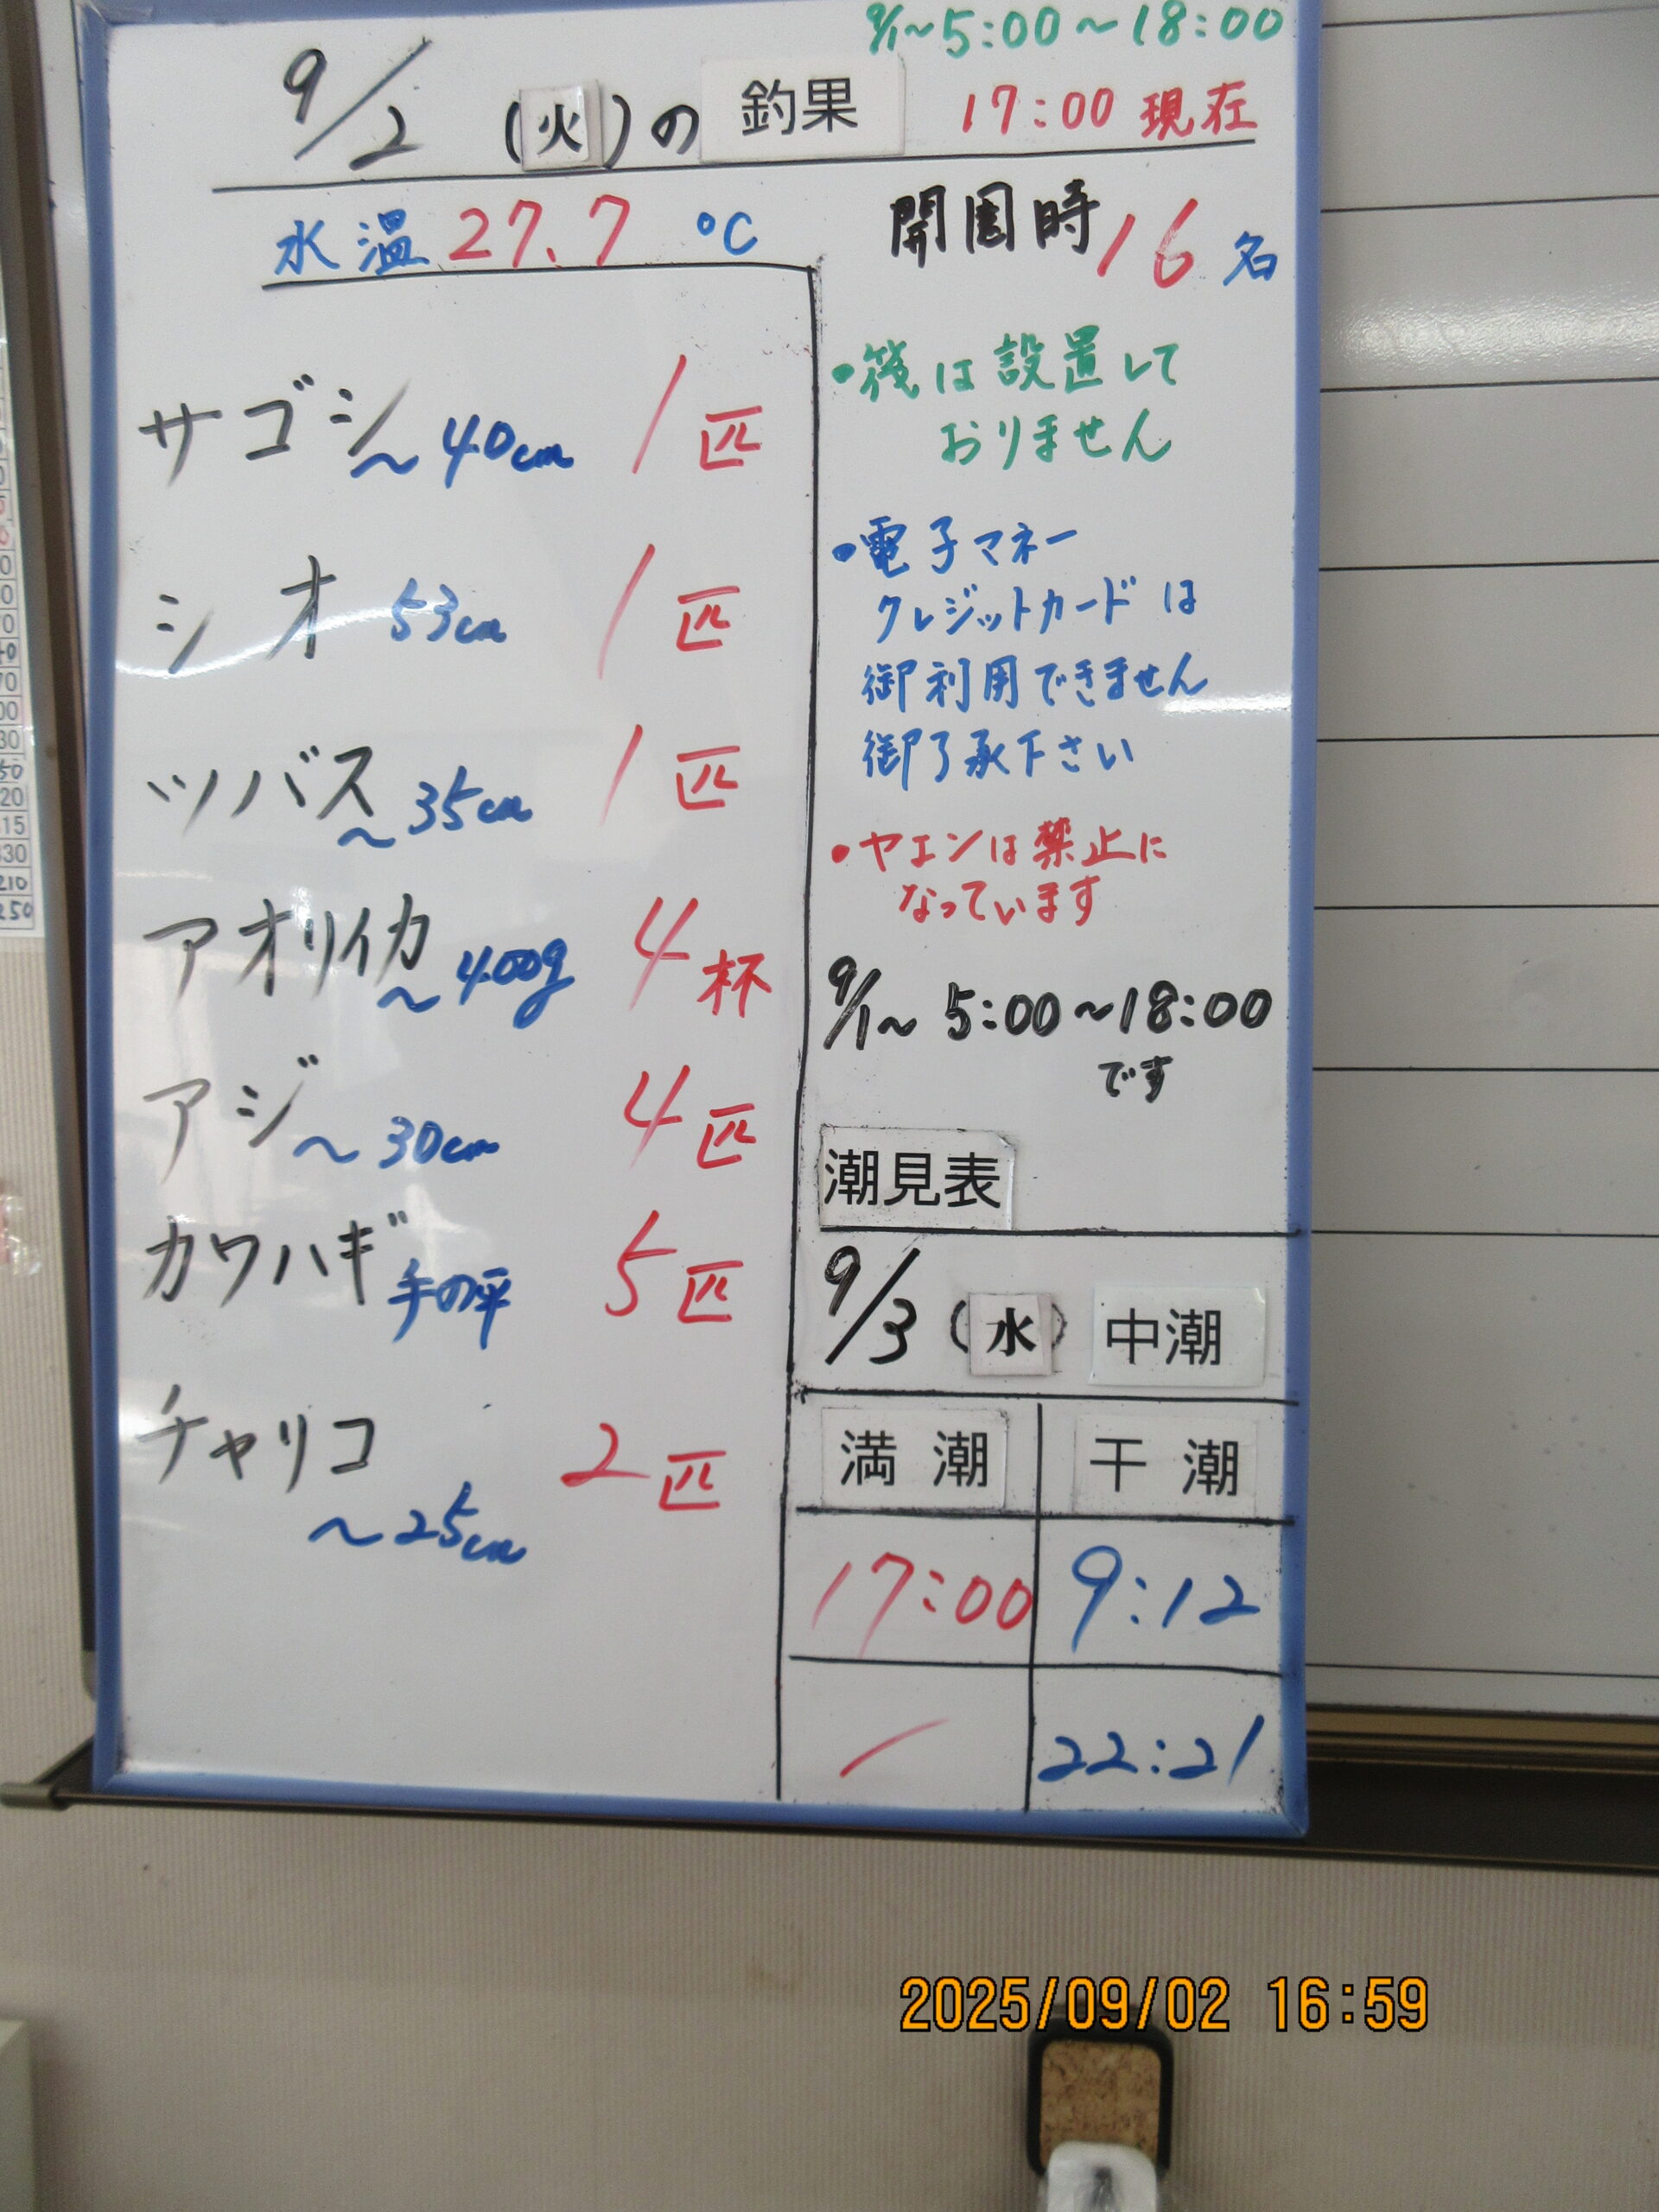 9/1～5:00～18:00
9/2 (火)の 釣果 17:00 現在
水温 27.7 ℃
開園時 16 名
サゴシ ～40cm 1匹
シオ 53cm 1匹
ツバス ～35cm 1匹
アオリイカ ～400g 4杯
アジ ～30cm 4匹
カワハギ 手の平 5匹
チャリコ 2匹
～25cm
・筏は設置して
おりません
・電子マネー
クレジットカードは
御利用できません
御了承下さい
・ヤエンは禁止に
なっています
9/1～ 5:00～18:00
です
潮見表
9/3 (水) 中潮
満潮 干潮
17:00 9:12
／ 22:21
2025/09/02 16:59